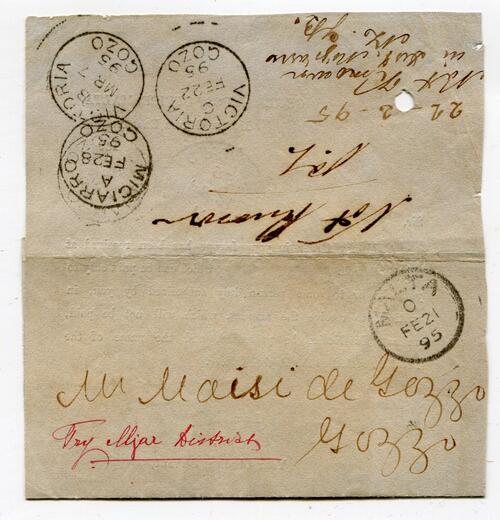 VICTORIA
B
MR 7
95
GOZO
VICTORIA
C
FE 22
95
GOZO
MIGIARRO
A
FE 28
95
GOZO
Not Known
in
22-2-95
Not Known
MALTA
O
FE 21
95
Mr Maisi de Gozzo
Gozzo
Try Mjar District